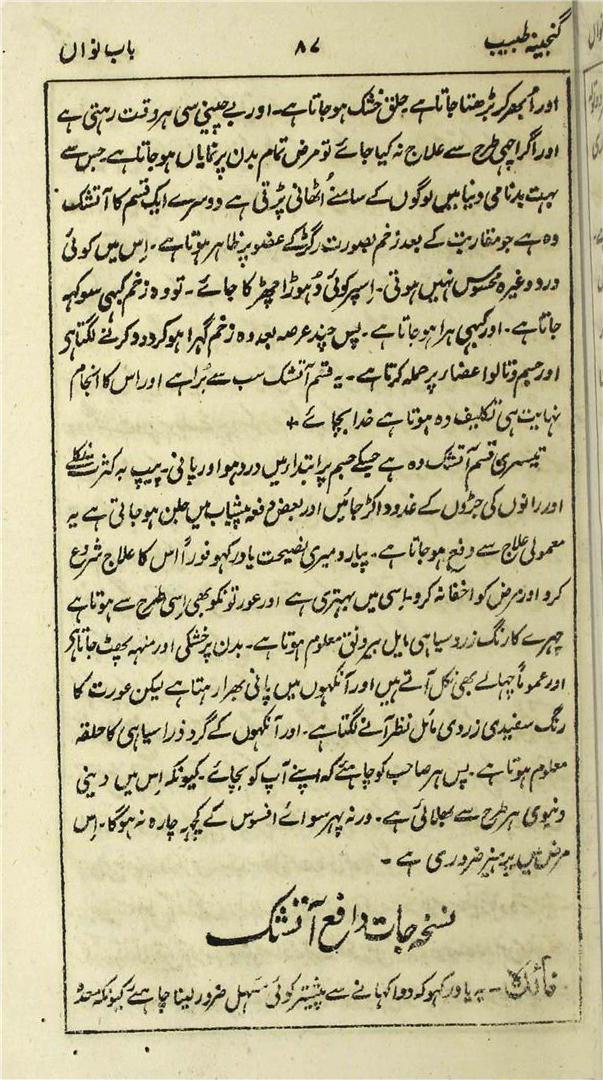 گنجینہ طبیب ۸۷ باب نواں
اور اُبھر کر بڑھتا جاتا ہے۔ حلق خشک ہو جاتا ہے۔ اور بے چینی سی ہر وقت رہتی ہے
اور اگر اچھی طرح سے علاج نہ کیا جائے تو مرض تمام بدن پر نمایاں ہو جاتا ہے۔ جس سے
بہت بدنامی دنیا میں لوگوں کے سامنے اُٹھانی پڑتی ہے دوسرے ایک قسم کا آتشک
وہ ہے جو مقاربت کے بعد زخم بصورت رگڑ کے عضو پر ظاہر ہوتا ہے۔ اِس میں کوئی
درد وغیرہ محسوس نہیں ہوتی۔ اِسپر کوئی دُہوڑا چھڑکا جائے۔ تو وہ زخم کبہی سوکہہ
جاتا ہے۔ اور کبہی ہرا ہو جاتا ہے۔ پس چند عرصہ بعد وہ زخم گہرا ہو کر درد کرنے لگتا ہے
اور جسم و تالو اعضاء پر حملہ کرتا ہے۔ یہ قسم آتشک سب سے بُرا ہے اور اس کا انجام
نہایت ہی تکلیف دہ ہوتا ہے خدا بچائے +
تیسری قسم آتشک وہ ہے جسکے جسم پر ابتدا میں درد ہو اور پانی۔ پیپ بہ کثرت نکلے
اور رانوں کی جڑوں کے غدود اکڑ جائیں اور بعض دفعہ پیشاب میں جلن ہو جاتی ہے یہ
معمولی علاج سے دفع ہو جاتا ہے۔ پیارو میری نصیحت یاد رکہو فوراً اس کا علاج شروع
کرو اور مرض کو اخفا نہ کرو۔ اِسی میں بہتری ہے اور عورتونکو بھی اِسی طرح سے ہوتا ہے
چہرے کا رنگ زرد سیاہی مایل بیرونق معلوم ہوتا ہے۔ بدن پر خشکی اور منہہ پھٹ جاتا ہے
اور عموماً چہالے بھی نکل آتے ہیں اور آنکہوں میں پانی بھرا رہتا ہے لیکن عورت کا
رنگ سفیدی زردی مائل نظر آنے لگتا ہے۔ اور آنکہوں کے گرد ذرا سیاہی کا حلقہ
معلوم ہوتا ہے۔ پس ہر صاحب کو چاہئے کہ اپنے آپ کو بچائے۔ کیونکہ اِس میں دینی
دنیوی ہر طرح سے بھلائی ہے۔ ورنہ پہر سوائے افسوس کے کچہہ چارہ نہ ہوگا۔ اِس
مرض میں پرہیز ضروری ہے ۔
نسخہ جات دافع آتشک
فائدہ ۔ یہ یاد رکہو کہ دوا کہانے سے پیشتر کوئی مسہل ضرور لینا چاہئے کیونکہ معدہ